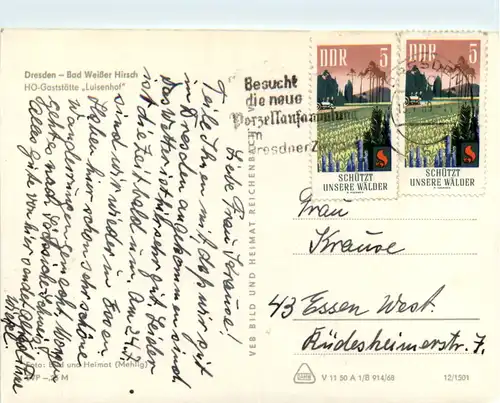 Dresden – Bad Weißer Hirsch
HO-Gaststätte „Luisenhof"
Besucht
die neue
Porzellansammlung
im
Dresdner Z
DDR 5
SCHÜTZT
UNSERE WÄLDER
DDR 5
SCHÜTZT
UNSERE WÄLDER
Liebe Frau Krause!
Teile Ihnen mit, daß wir gut
in Dresden angekommen sind
Das Wetter ist sehr gut. Leider
ist die Zeit bald um. Am 24.7.
sind wir wieder in Essen.
Haben hier schon sehr schöne
gemacht. Morgen
geht es nach
Alles gute von hier
VEB BILD UND HEIMAT REICHENBACH
Frau
Krause
43 Essen West.
Rüdesheimerstr. 7.
Foto: Bild und Heimat (Mehlig)
M
V 11 50 A 1/B 914/68
12/1501